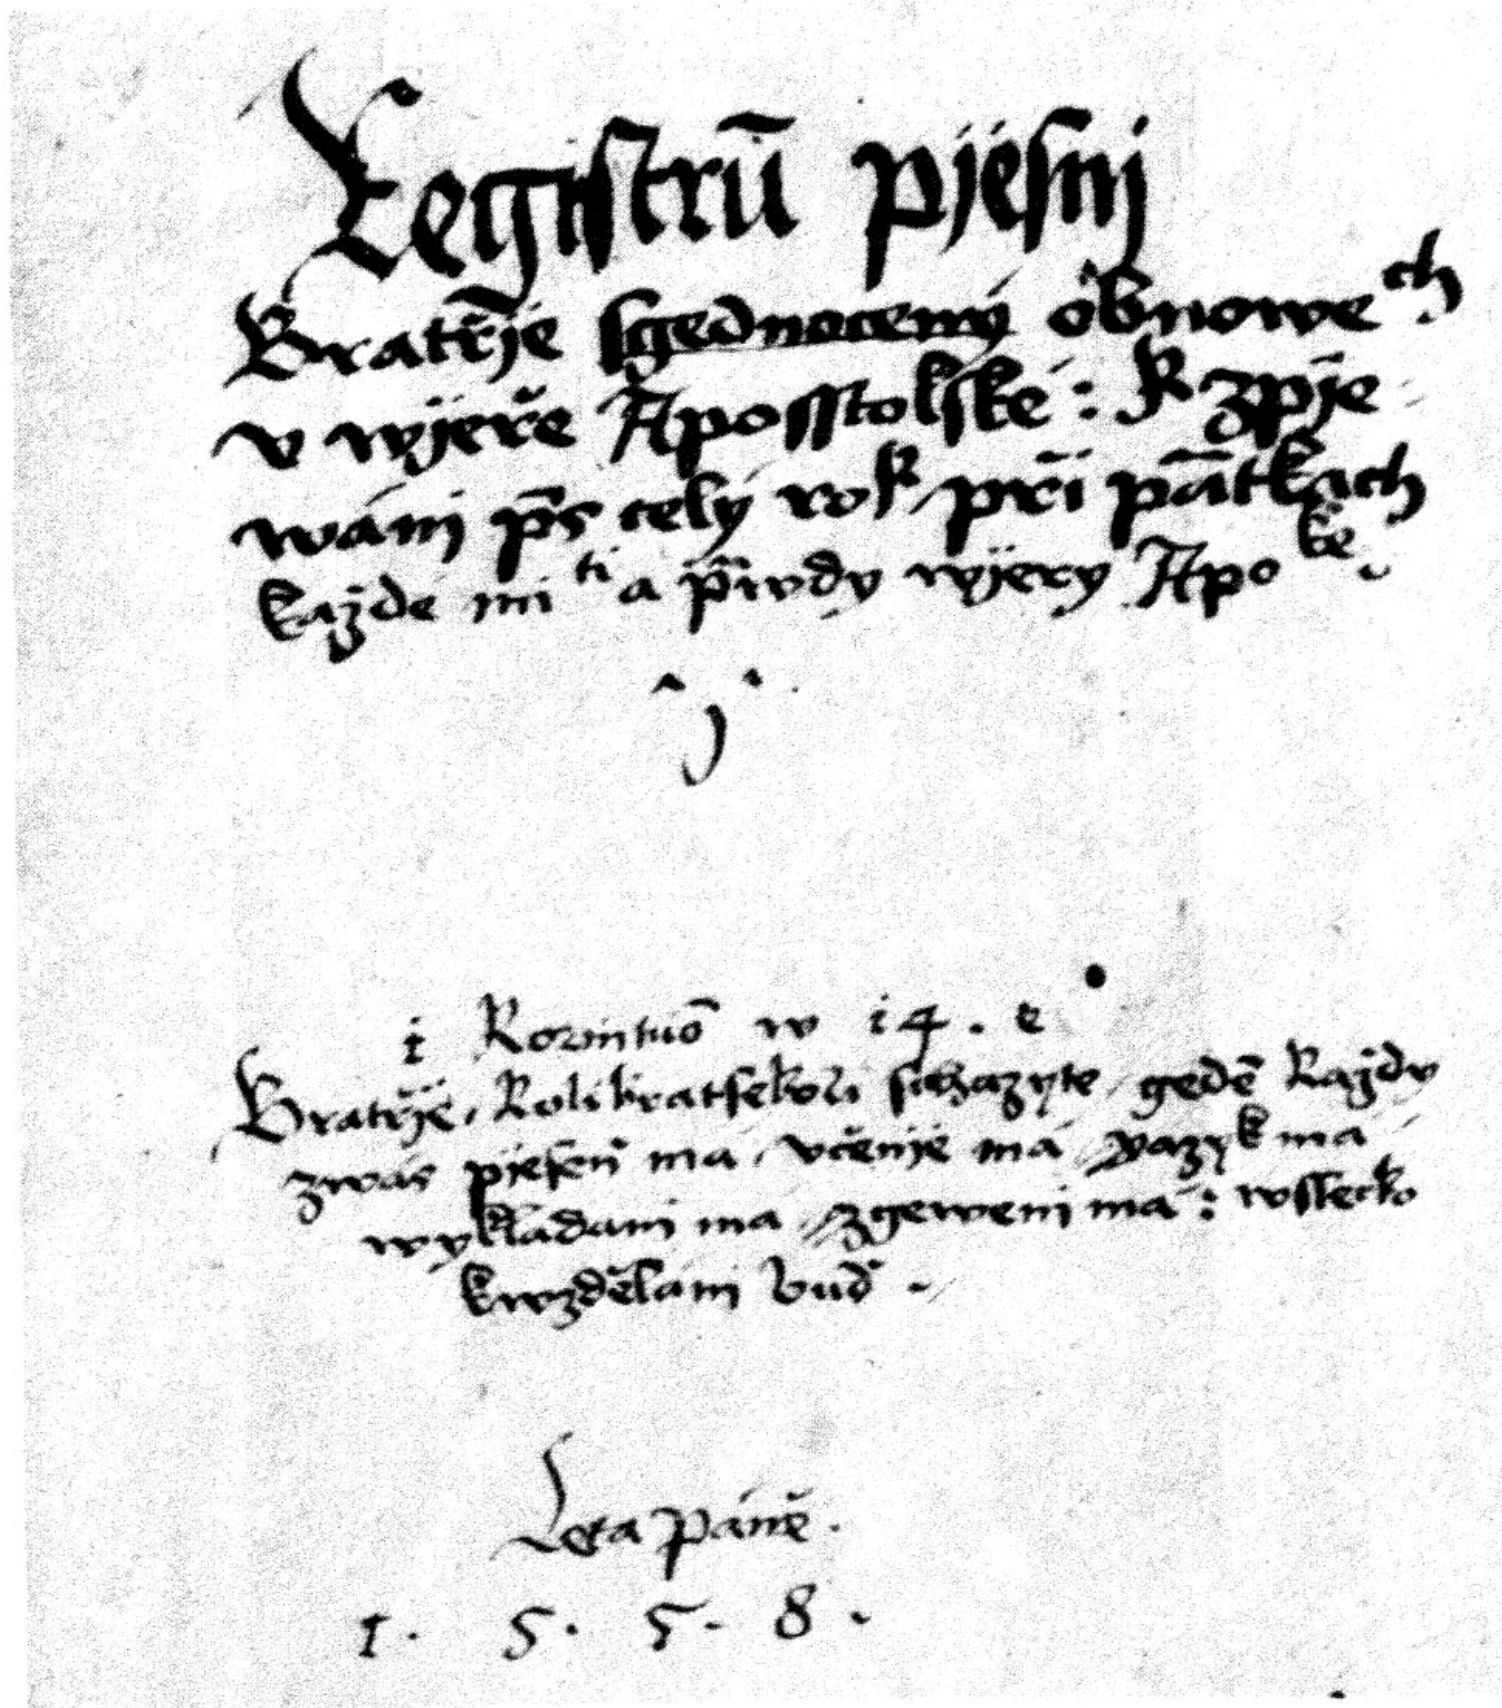 Registrū pjesnj
Bratřjé sgednocený obnowe ch
v wjeře Aposstolské : K zpje
wánj p̄s celý rok při pā́tkach
každé mi ti a p̄wdy wjery Apo ké
i Korintuō w i4 . e
Bratřjé, Kolibratsekoli scházyte gedē Každý
zwás pjeseň má, včenjé má Yazyk má
wykládanj ma, zgewenj má : wssecko
kwzdělánj buď .
Leta páně .
1 . 5 . 5 . 8 .